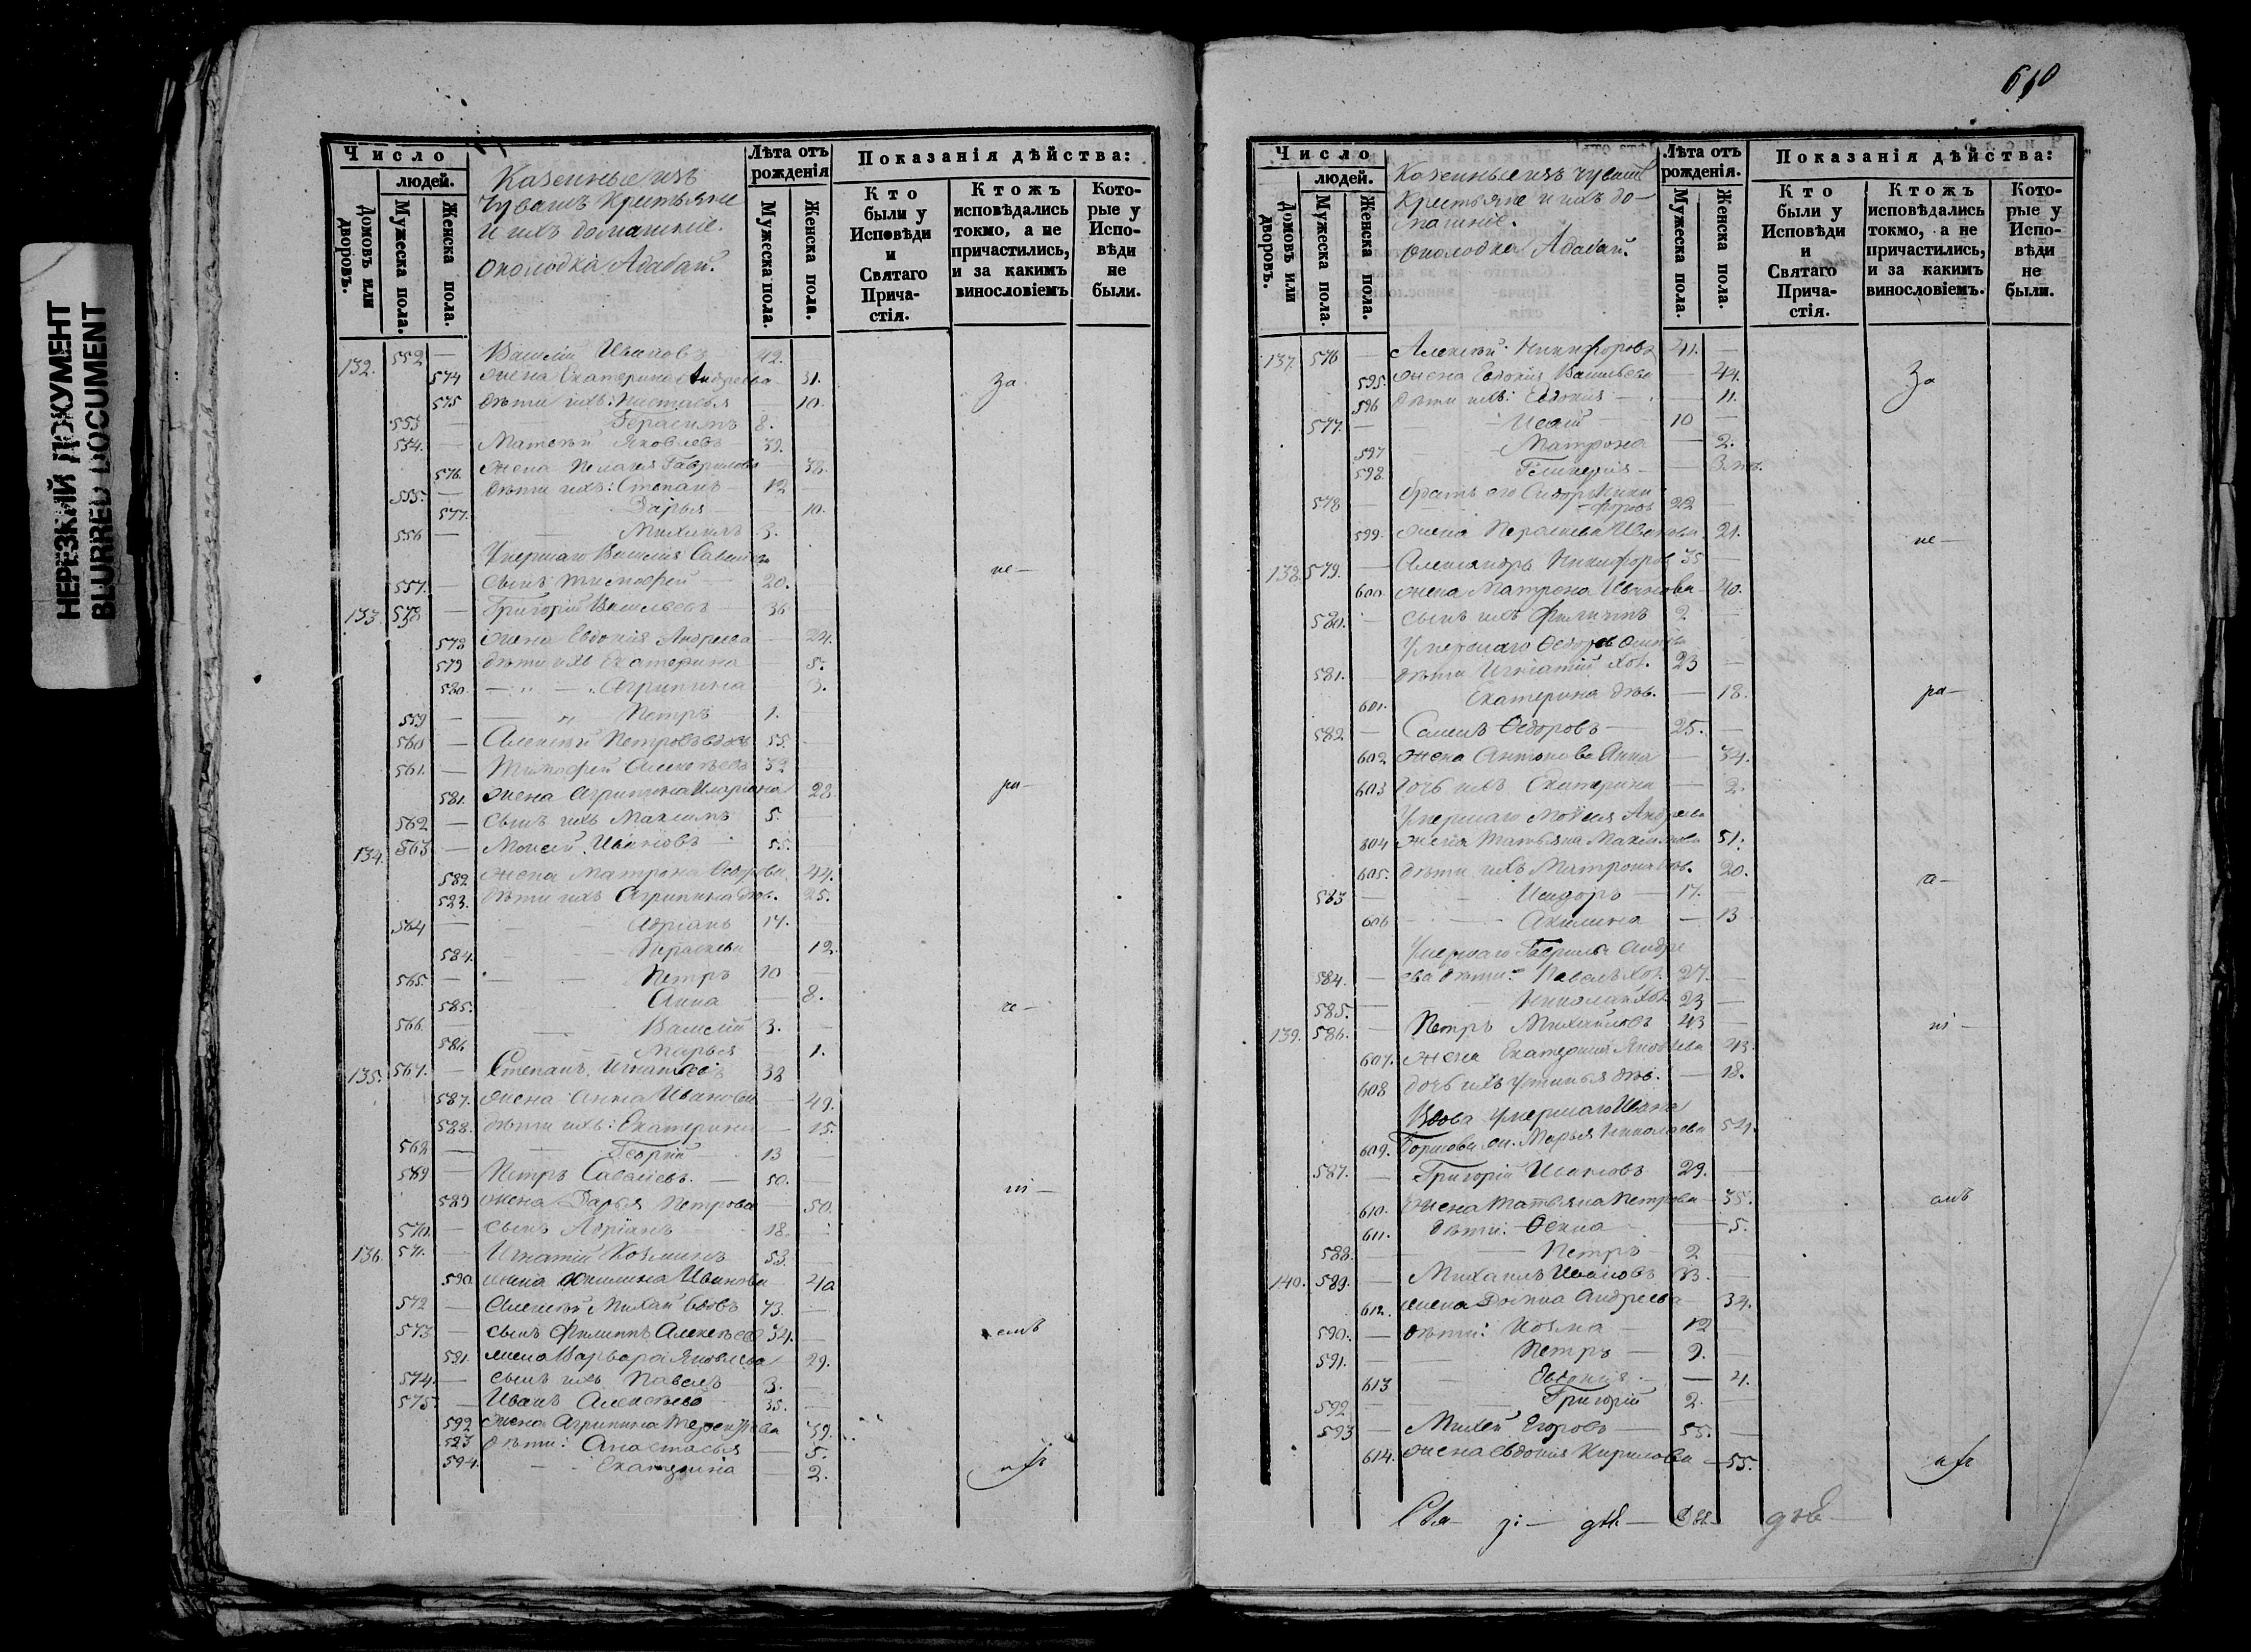 НЕРЕЗКИЙ ДОКУМЕНТ
BLURRED DOCUMENT
Число
людей.
Домовъ или дворовъ.
Мужеска пола.
Женска пола.
Казенные изъ
Чувашъ Крестьяне
и ихъ домашніе.
околодка Адабай.
Лѣта отъ рожденія
Мужеска пола.
Женска пола.
Показанія дѣйства:
Кто были у Исповѣди и Святаго Прича-стія.
Ктожъ исповѣдались токмо, а не причастились, и за какимъ винословіемъ
Кото-рые у Испо-вѣди не были.
132. 552 — Василій Ивановъ 42. —
574 жена Екатерина Андреева — 31. За
575 дѣти ихъ: Настасья 10.
553 — Герасимъ 8.
554. — Матвѣй Яковлевъ 39.
576. жена Пелагія Гаврилова — 38.
555. — дѣти ихъ: Степанъ 12 —
577. Дарья 10.
556 — Михаилъ 3.
Умершаго Василія
557. — сынъ Тимофей 20. не—
133. 558 — Григорій Васильевъ 36
578 жена Евдокія Андреева — 24.
579 дѣти ихъ Екатерина — 5.
580. — „ — Агрипина 3.
559 — „ Петръ 1.
560 — Алексѣй Петровъ вдовъ 55. —
561. — Тимофей Алексѣевъ 32
581. жена Агрипина 28 ра—
562 — сынъ ихъ Максимъ 5. —
134. 563 — Моисей Ивановъ 55.
582 жена Матрона Федорова 44.
583. дѣти ихъ Агрипина дѣв. 25.
564 — Адріанъ 14.
584. — Параскева 12.
565. — Петръ 10 —
585. Анна — 8. че—
566. — Василій 3. —
586 — Марья — 1.
135. 567. — Степанъ Игнатьевъ 38
587. жена Анна Иванова — 49.
588. дѣти ихъ: Екатерина — 15.
568 — Георгій 13 —
569 — Петръ Савельевъ. — 50. —
589 жена Дарья Петрова — 50. ні—
570. — сынъ Адріанъ 18.
136. 571. — Игнатій Козминъ 53. —
590. жена Акилина Иванова 40
572 — Алексѣй вдовъ 73. —
573 — сынъ Филиппъ Алексѣевъ 34. — емъ
591. жена Варвара Яковлева 29.
574. — сынъ ихъ Павелъ 3. —
575. — Иванъ Алексѣевъ 35. —
592 жена Агрипина Терентьева 39.
593 дѣти: Анастасья — 5.
594. — Екатерина — 2.
610
Число
людей.
Домовъ или дворовъ.
Мужеска пола.
Женска пола.
Казенные изъ чувашъ
Крестьяне и ихъ до-
машніе.
околодка Адабай.
Лѣта отъ рожденія.
Мужеска пола.
Женска пола.
Показанія дѣйства:
Кто были у Исповѣди и Святаго Прича-стія.
Ктожъ исповѣдались токмо, а не причастились, и за какимъ винословіемъ.
Кото-рые у Испо-вѣди не были.
137. 576 — Алексѣй Никифоровъ 41. —
595. жена Евдокія Васильева — 44. За
596 дѣти ихъ: Евдокія — 11.
577. — Исай 10 —
597 — Матрона — 2.
598. Гликерія — 3 м.
578 — братъ его Сидоръ Ники-
форовъ 22 —
599. жена Параскева Иванова 21. не—
138. 579. — Александръ Никифоровъ 35 —
600. жена Матрона Иванова — 40.
580. — сынъ ихъ Филиппъ 2 —
Умершаго Федора
581. — дѣти Игнатій хол. 23 —
601. Екатерина дѣв. — 18. ра—
582 — Семенъ Федоровъ — 25. —
602. жена Антонова Анна — 34.
603 дочь ихъ Екатерина — 2.
Умершаго Моисея Андреева
604 жена Татьяна Максимова 51.
605. дѣти ихъ Матрона дѣв. 20. а—
583 — Исидоръ — 17. —
606 — Акилина — 13
Умершаго Гаврила Андре
584. — ева дѣти: Павелъ хол. 27. —
585. — Николай хол. 23 —
139. 586. — Петръ Михайловъ 43 — ні—
607. жена Екатерина Яковлева 43.
608 дочь ихъ Устинья дѣв. — 18.
Вдова умершаго Ивана
609. Марья Николаева 54.
587. — Григорій Ивановъ 29. —
610. жена Татьяна Петрова — 35. емъ
611. дѣти: Фекла — 5.
588. — Петръ 2 —
140. 589. — Михаилъ Ивановъ 33. —
612. жена Домна Андреева 34.
590. — дѣти: Козма 12 —
591. — Петръ — 9. —
613 — Евдокія — 4.
592 — Григорій 2. —
593 — Михей Егоровъ — 55. —
614. жена Евдокія Кирилова — 55.